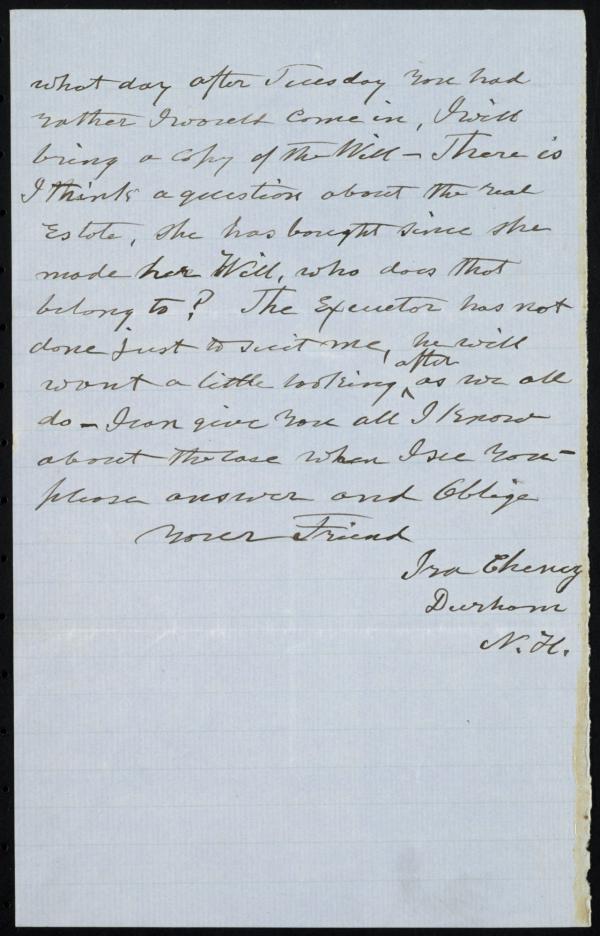 what day after Tuesday you had
rather I would come in, I will
bring a copy of the Will – There is
I think a question about the real
Estate, she has bought since she
made her Will, who does that
belong to? The Executor has not
done just to suit me, he will
want a little looking after as we all
do – I can give you all I know
about the case when I see you –
please answer and Oblige
your Friend
Ira Cheney
Durham
N. H.